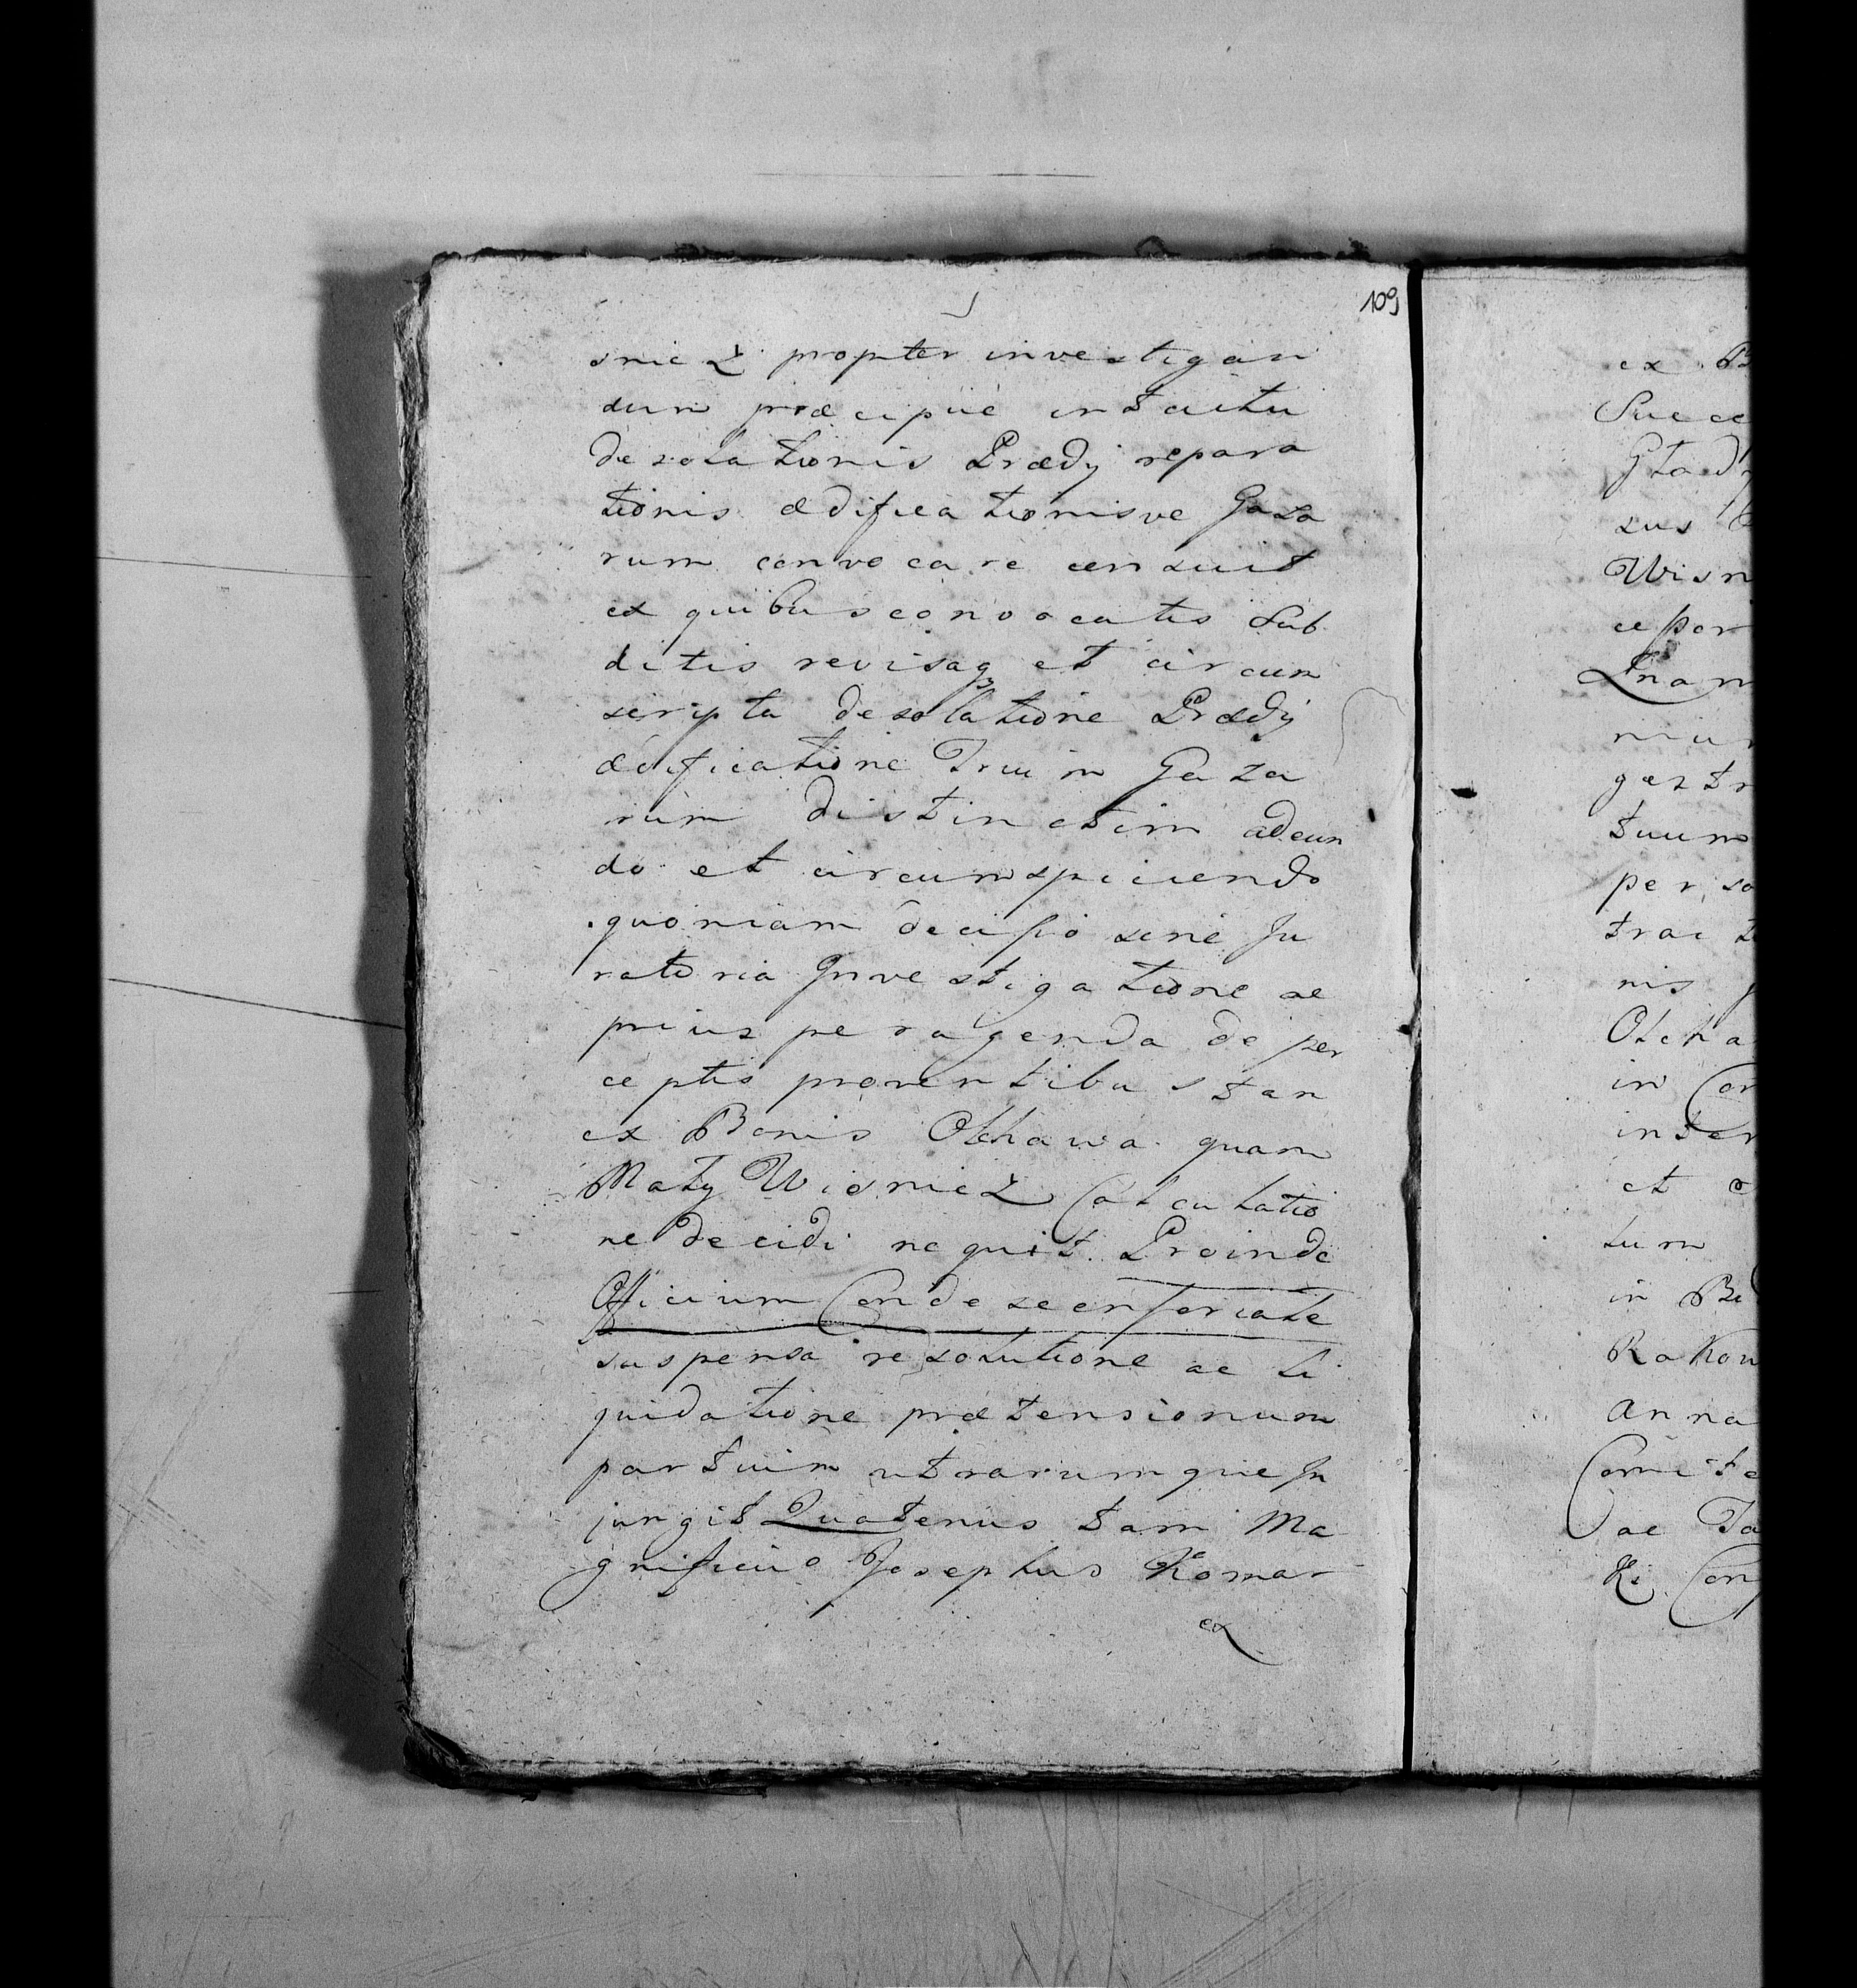 109
snicz propter investigan
dum præcipüe intuitu
desolationis Prædij repara
tionis ædificationisve Gaza
rum convocare censuit
ex quibus convocatis sub
ditis revisaq3 et circum
scripta desolatione Prædij
ædificatione Trium Gaza
rum distinctim adeun
do et circumspiciendo
quoniam decisio sine Ju
ratoria Investigatione se
prius peragenda de per
ceptis proventibus tan
ex Bonis Olchawa quam
Mały Wisnicz Calculatio
ne decidi nequit. Proinde
Officium Condescensoriale
suspensa resolutione ac li
quidatione prætensionum
partium utrarumque In
jungit Quatenus tam Ma
gnificus Josephus Komar
ex
ex B
Succe
Stad
sus
Wisn
cepor
Lnam
niu
gestr
tuum
per so
trac
nis
Olcha
in Con
inter
et
tum
in Bo
Rakow
Anna
Comite
ac Ta
Ki Con